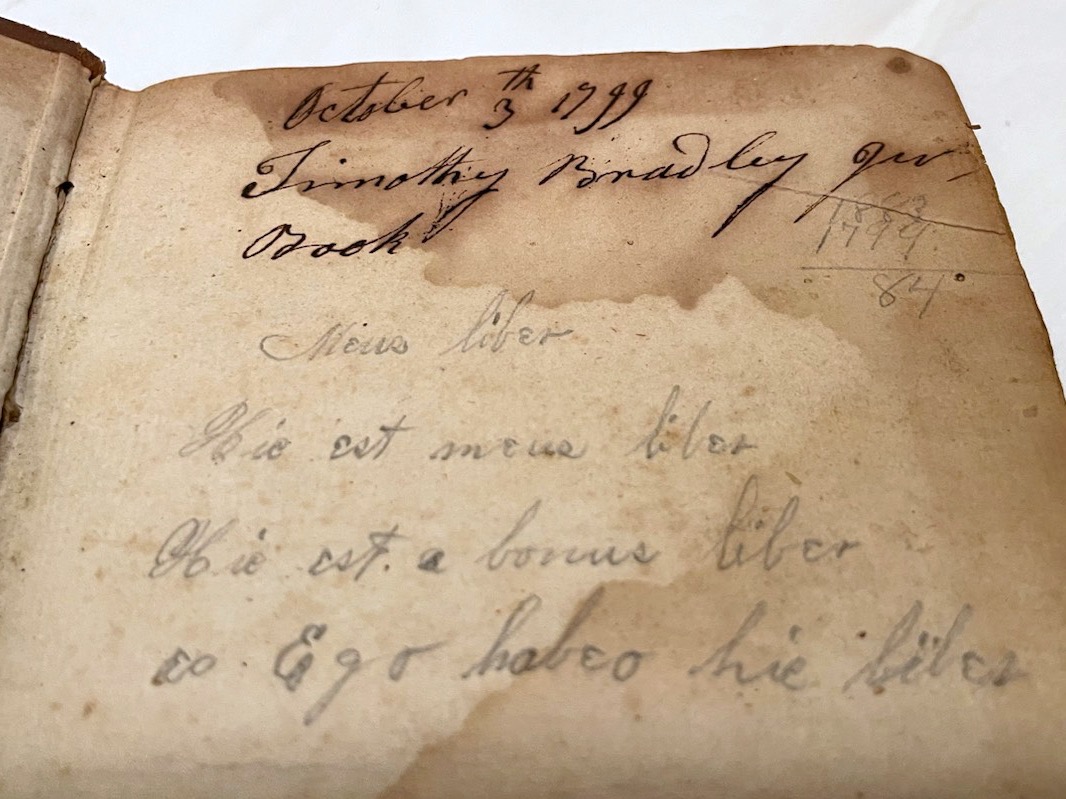 October 3th 1799
Timothy Bradley Jur
Book
1883
1799
84
Meus liber
Hic est meus liber
Hic est a bonus liber
Ego habeo hic liber